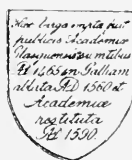 Hæc virga empta fuit
publicis Academiæ
sumptibus
AD 1465 in Galliam
ablata AD 1560 et
Academiæ
restituta
AD 1590.